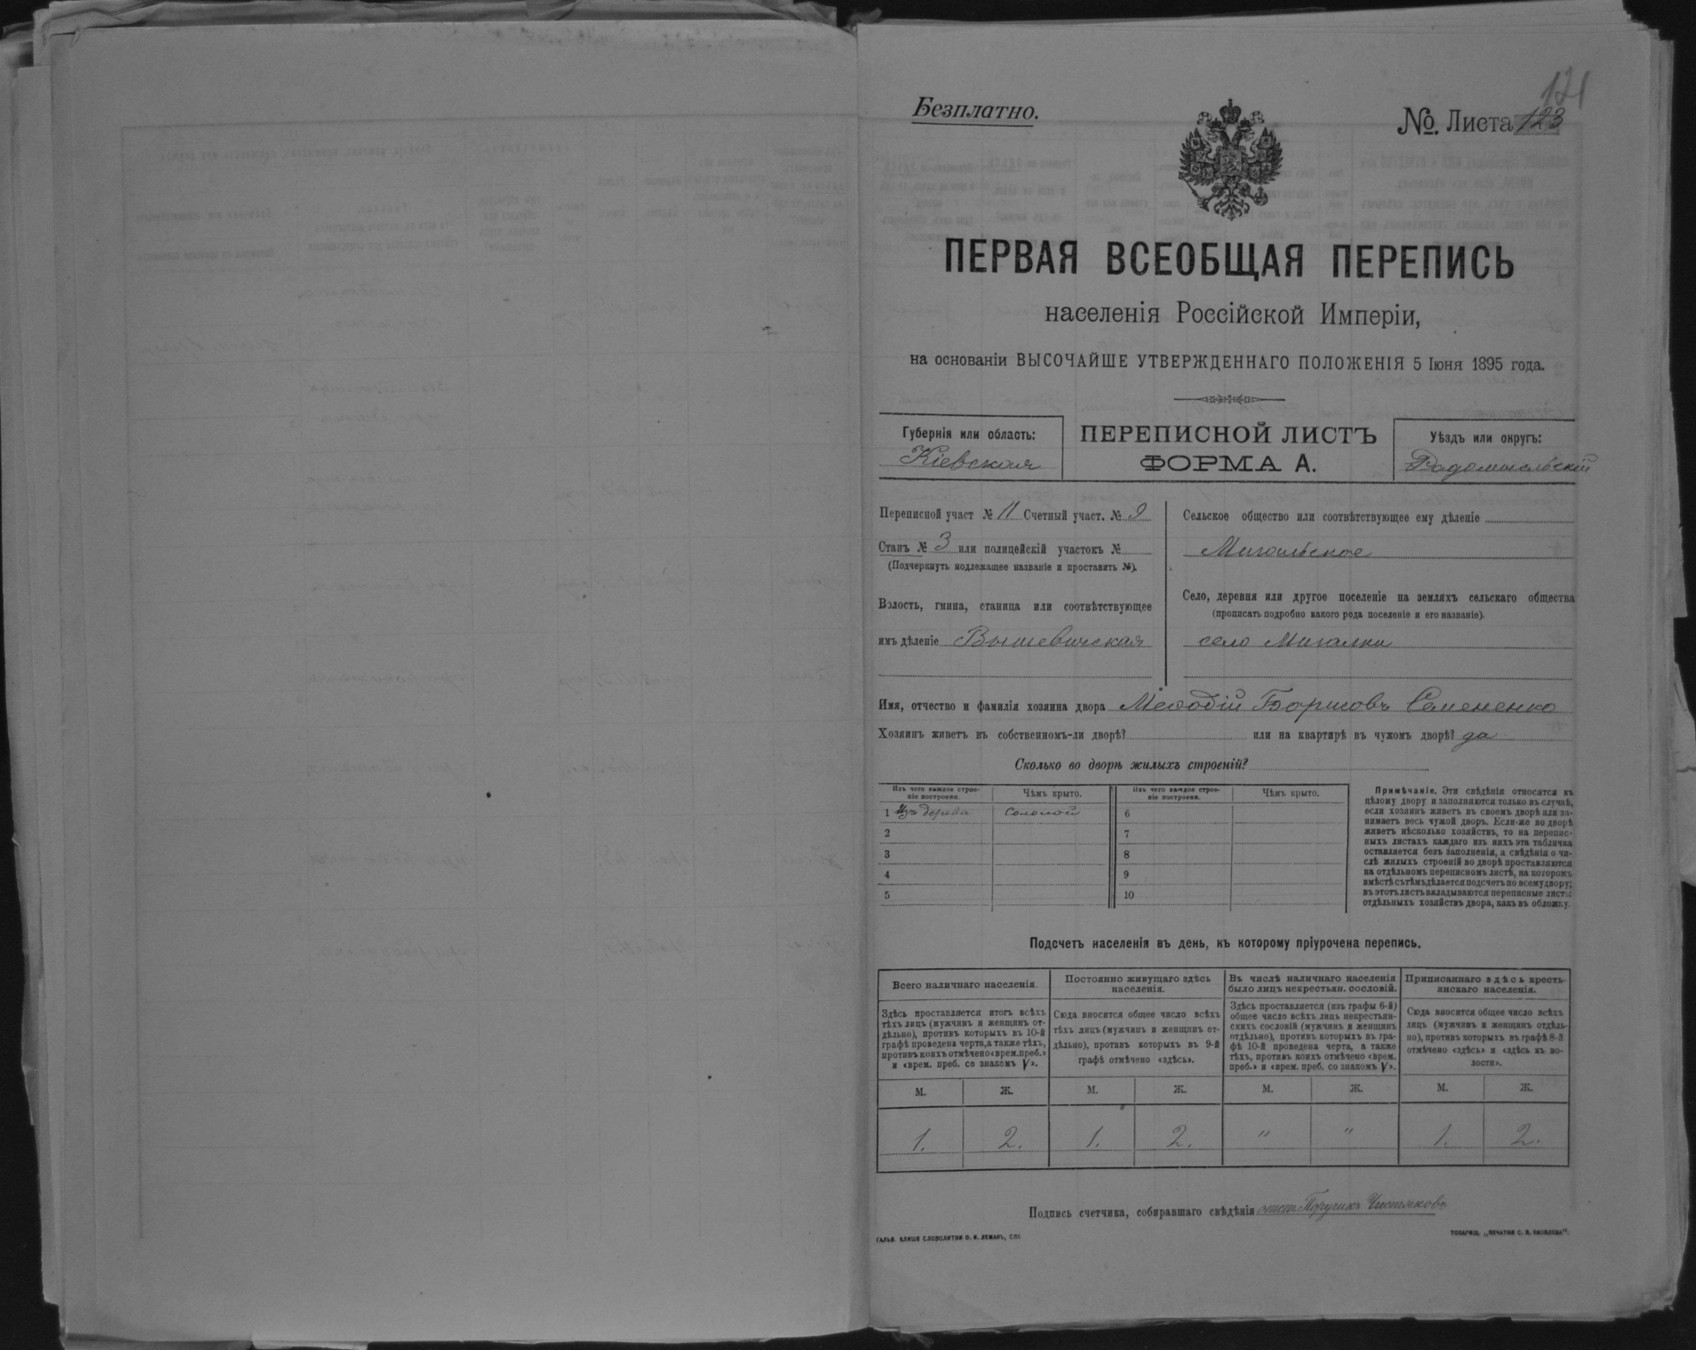 121
Безплатно.
№. Листа 123
ПЕРВАЯ ВСЕОБЩАЯ ПЕРЕПИСЬ
населенія Россійской Имперіи,
на основаніи ВЫСОЧАЙШЕ УТВЕРЖДЕННАГО ПОЛОЖЕНІЯ 5 Іюня 1895 года.
Губернія или область:
Кіевская
ПЕРЕПИСНОЙ ЛИСТЪ
ФОРМА А.
Уѣздъ или округъ:
Радомысльскій
Переписной участ № 11 Счетный участ. № 9
Станъ № 3 или полицейскій участокъ №
(Подчеркнуть надлежащее названіе и проставить №).
Волость, гмина, станица или соотвѣтствующее
имъ дѣленіе Вышевичская
Сельское общество или соотвѣтствующее ему дѣленіе
Мигальское
Село, деревня или другое поселеніе на земляхъ сельскаго общества
(прописать подробно какого рода поселеніе и его названіе).
село Мигалки
Имя, отчество и фамилія хозяина двора Меѳодій Борисовъ Семененко
Хозяинъ живетъ въ собственномъ-ли дворѣ? или на квартирѣ въ чужомъ дворѣ? да
Сколько во дворѣ жилыхъ строеній?
Изъ чего каждое строе-
ніе построено.
Чѣмъ крыто.
1 Изъ дерева Соломой
2
3
4
5
Изъ чего каждое строе-
ніе построено.
Чѣмъ крыто.
6
7
8
9
10
Примѣчаніе. Эти свѣдѣнія относятся къ
цѣлому двору и заполняются только въ случаѣ,
если хозяинъ живетъ въ своемъ дворѣ или за-
нимаетъ весь чужой дворъ. Если-же во дворѣ
живетъ нѣсколько хозяйствъ, то на перепис-
ныхъ листахъ каждаго изъ нихъ эта табличка
оставляется безъ заполненія, а свѣдѣнія о чи-
слѣ жилыхъ строеній во дворѣ проставляются
на отдѣльномъ переписномъ листѣ, на которомъ
вмѣстѣ съ тѣмъ дѣлается подсчетъ по всему двору;
въ этотъ листъ вкладываются переписные листы
отдѣльныхъ хозяйствъ двора, какъ въ обложку.
Подсчетъ населенія въ день, къ которому пріурочена перепись.
Всего наличнаго населенія.
Здѣсь проставляется итогъ всѣхъ
тѣхъ лицъ (мужчинъ и женщинъ от-
дѣльно), противъ которыхъ въ 10-й
графѣ проведена черта, а также тѣхъ,
противъ коихъ отмѣчено «врем. преб.»
и «врем. преб. со знакомъ V».
М. Ж.
1. 2.
Постоянно живущаго здѣсь
населенія.
Сюда вносится общее число всѣхъ
тѣхъ лицъ (мужчинъ и женщинъ от-
дѣльно), противъ которыхъ въ 9-й
графѣ отмѣчено «здѣсь».
М. Ж.
1. 2.
Въ числѣ наличнаго населенія
было лицъ некрестьян. сословій.
Здѣсь проставляется (изъ графы 6-й)
общее число всѣхъ лицъ некрестьян-
скихъ сословій (мужчинъ и женщинъ
отдѣльно), противъ которыхъ въ гра-
фѣ 10-й проведена черта, а также
тѣхъ, противъ коихъ отмѣчено «врем.
преб.» и «врем. преб. со знакомъ V».
М. Ж.
" "
Приписаннаго здѣсь кресть-
янскаго населенія.
Сюда вносится общее число всѣхъ
лицъ (мужчинъ и женщинъ отдѣль-
но), противъ которыхъ въ графѣ 8-й
отмѣчено «здѣсь» и «здѣсь въ во-
лости».
М. Ж.
1. 2.
Подпись счетчика, собиравшаго свѣдѣнія Чистяковъ
ГАЛЬВ. КЛИШЕ СЛОВОЛИТНИ О. И. ЛЕМАНЪ, СПБ
ТОВАРИЩ. „ПЕЧАТНЯ С. П. ЯКОВЛЕВА".